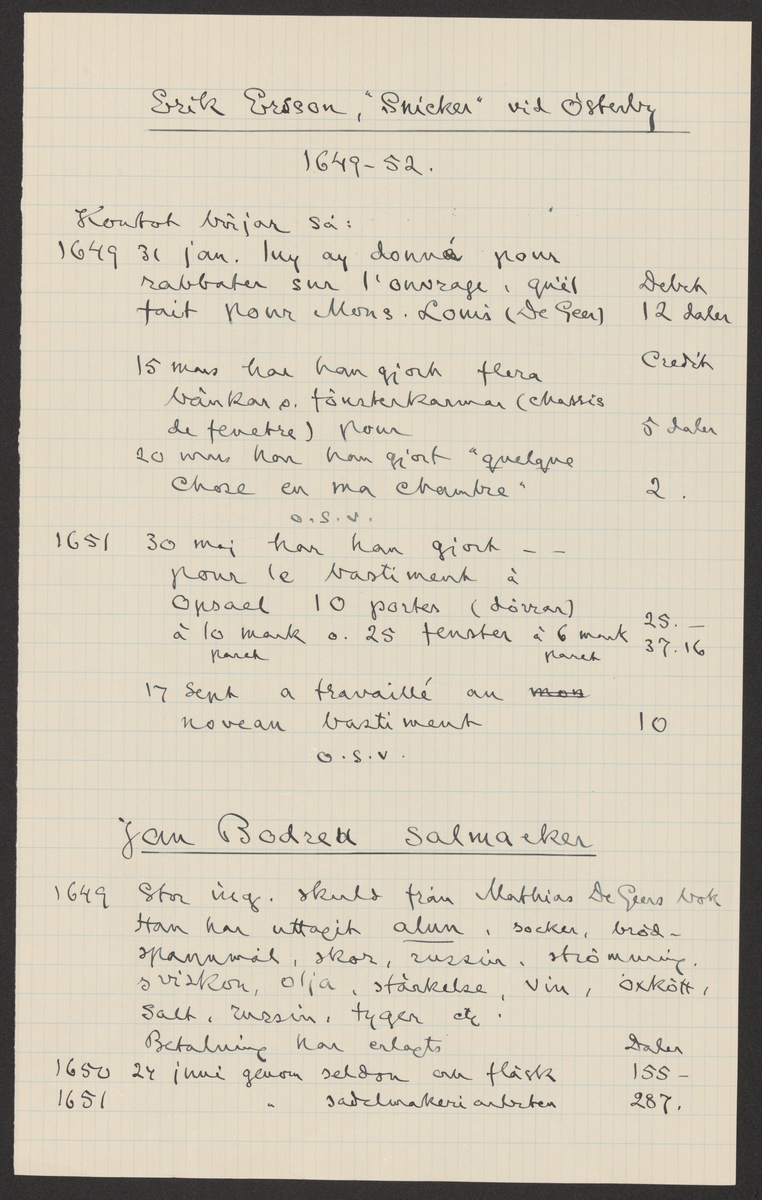 Erik Ersson, "Snicker" vid Österby
1649-52.
Kontot börjar så:
1649 31 jan. luy ay donné pour
rabbater sur l'ouvrage, qu'il Debet
fait pour Mons. Louis (De Geer) 12 daler
Credit
15 mars har han gjort flera
bänkar o. fönsterkarmar (chassis
de fenetre) pour 5 daler
20 mars har han gjort "quelque
chose en ma chambre" 2.
o.s.v.
1651 30 maj har han gjort - -
pour le bastiment à
Opsael 10 portes (dörrar) 25.-
à 10 mark o. 25 fenster à 6 mark 37.16
paret paret
17 Sept a travaillé au mon
noveau bastiment 10
o.s.v.
Jan Bodreu Salmaeker
1649 Stor ing. skuld från Mathias De Geers bok
Han har uttagit alun, socker, bröd-
spannmål, skor, russin, strömming,
sviskon, olja, stärkelse, vin, oxkött,
salt, russin, tyger etc.
Betalning har erlagts Daler
1650 24 juni genom seldon om fläsk 155-
1651 " sadelmakeriarbeten 287.